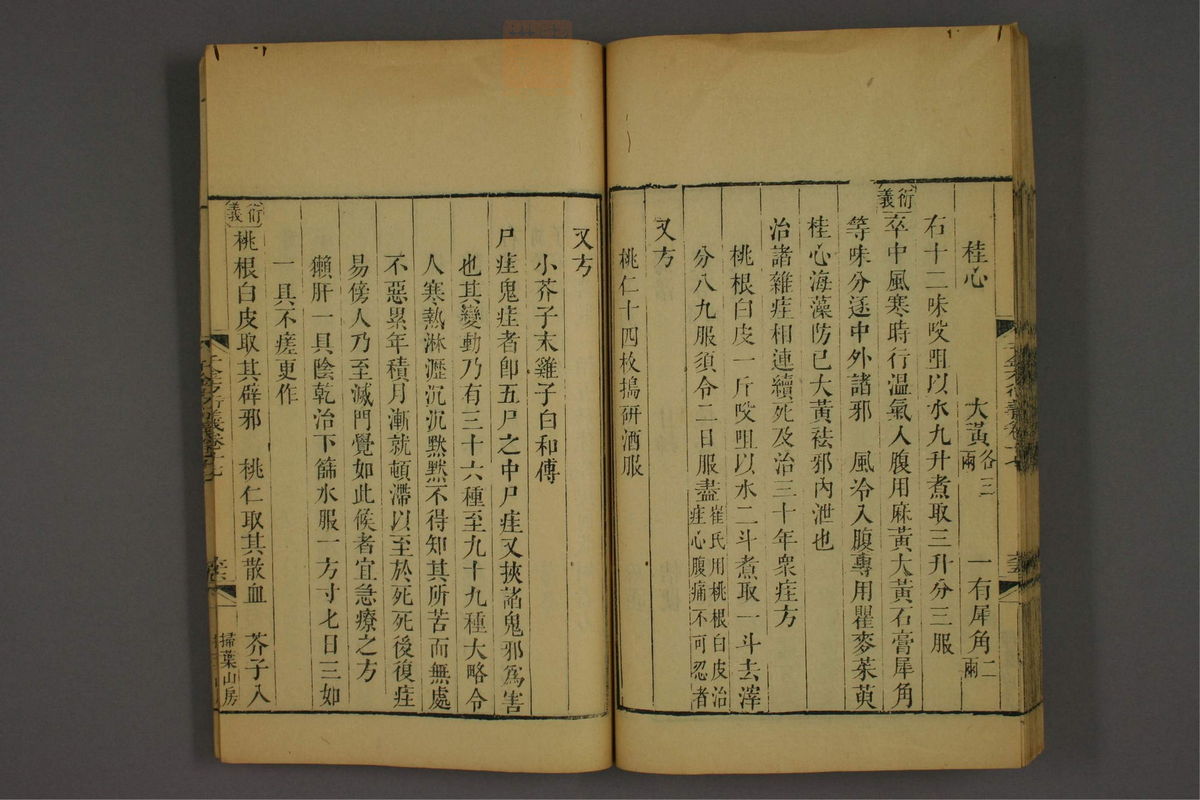 桂心　大黃各三兩　一有犀角二兩
右十二味㕮咀以水九升煮取三升分三服
衍義 卒中風寒時行溫氣人腹用麻黃大黃石膏犀角
等味分逐中外諸邪　風冷入腹專用瞿麥茱萸
桂心海藻防已大黃袪邪內泄也
治諸雜疰相連續死及治三十年衆疰方
桃根白皮一斤㕮咀以水二斗煮取一斗去滓
分八九服須令二日服盡崔氏用桃根白皮治疰心腹痛不可忍者
又方
桃仁十四枚搗硏酒服
又方
小芥子末雞子白和傅
尸疰鬼疰者卽五尸之中尸疰又挾諸鬼邪爲害
也其變動乃有三十六種至九十九種大略令
人寒熱淋瀝沉沉默默不得知其所苦而無處
不惡累年積月漸就頓滯以至於死死後復疰
易傍人乃至滅門覺如此候者宜急療之方
獺肝一具陰乾治下篩水服一方寸七日三如
一具不瘥更作
衍義 桃根白皮取其辟邪　桃仁取其散血　芥子入
掃葉山房